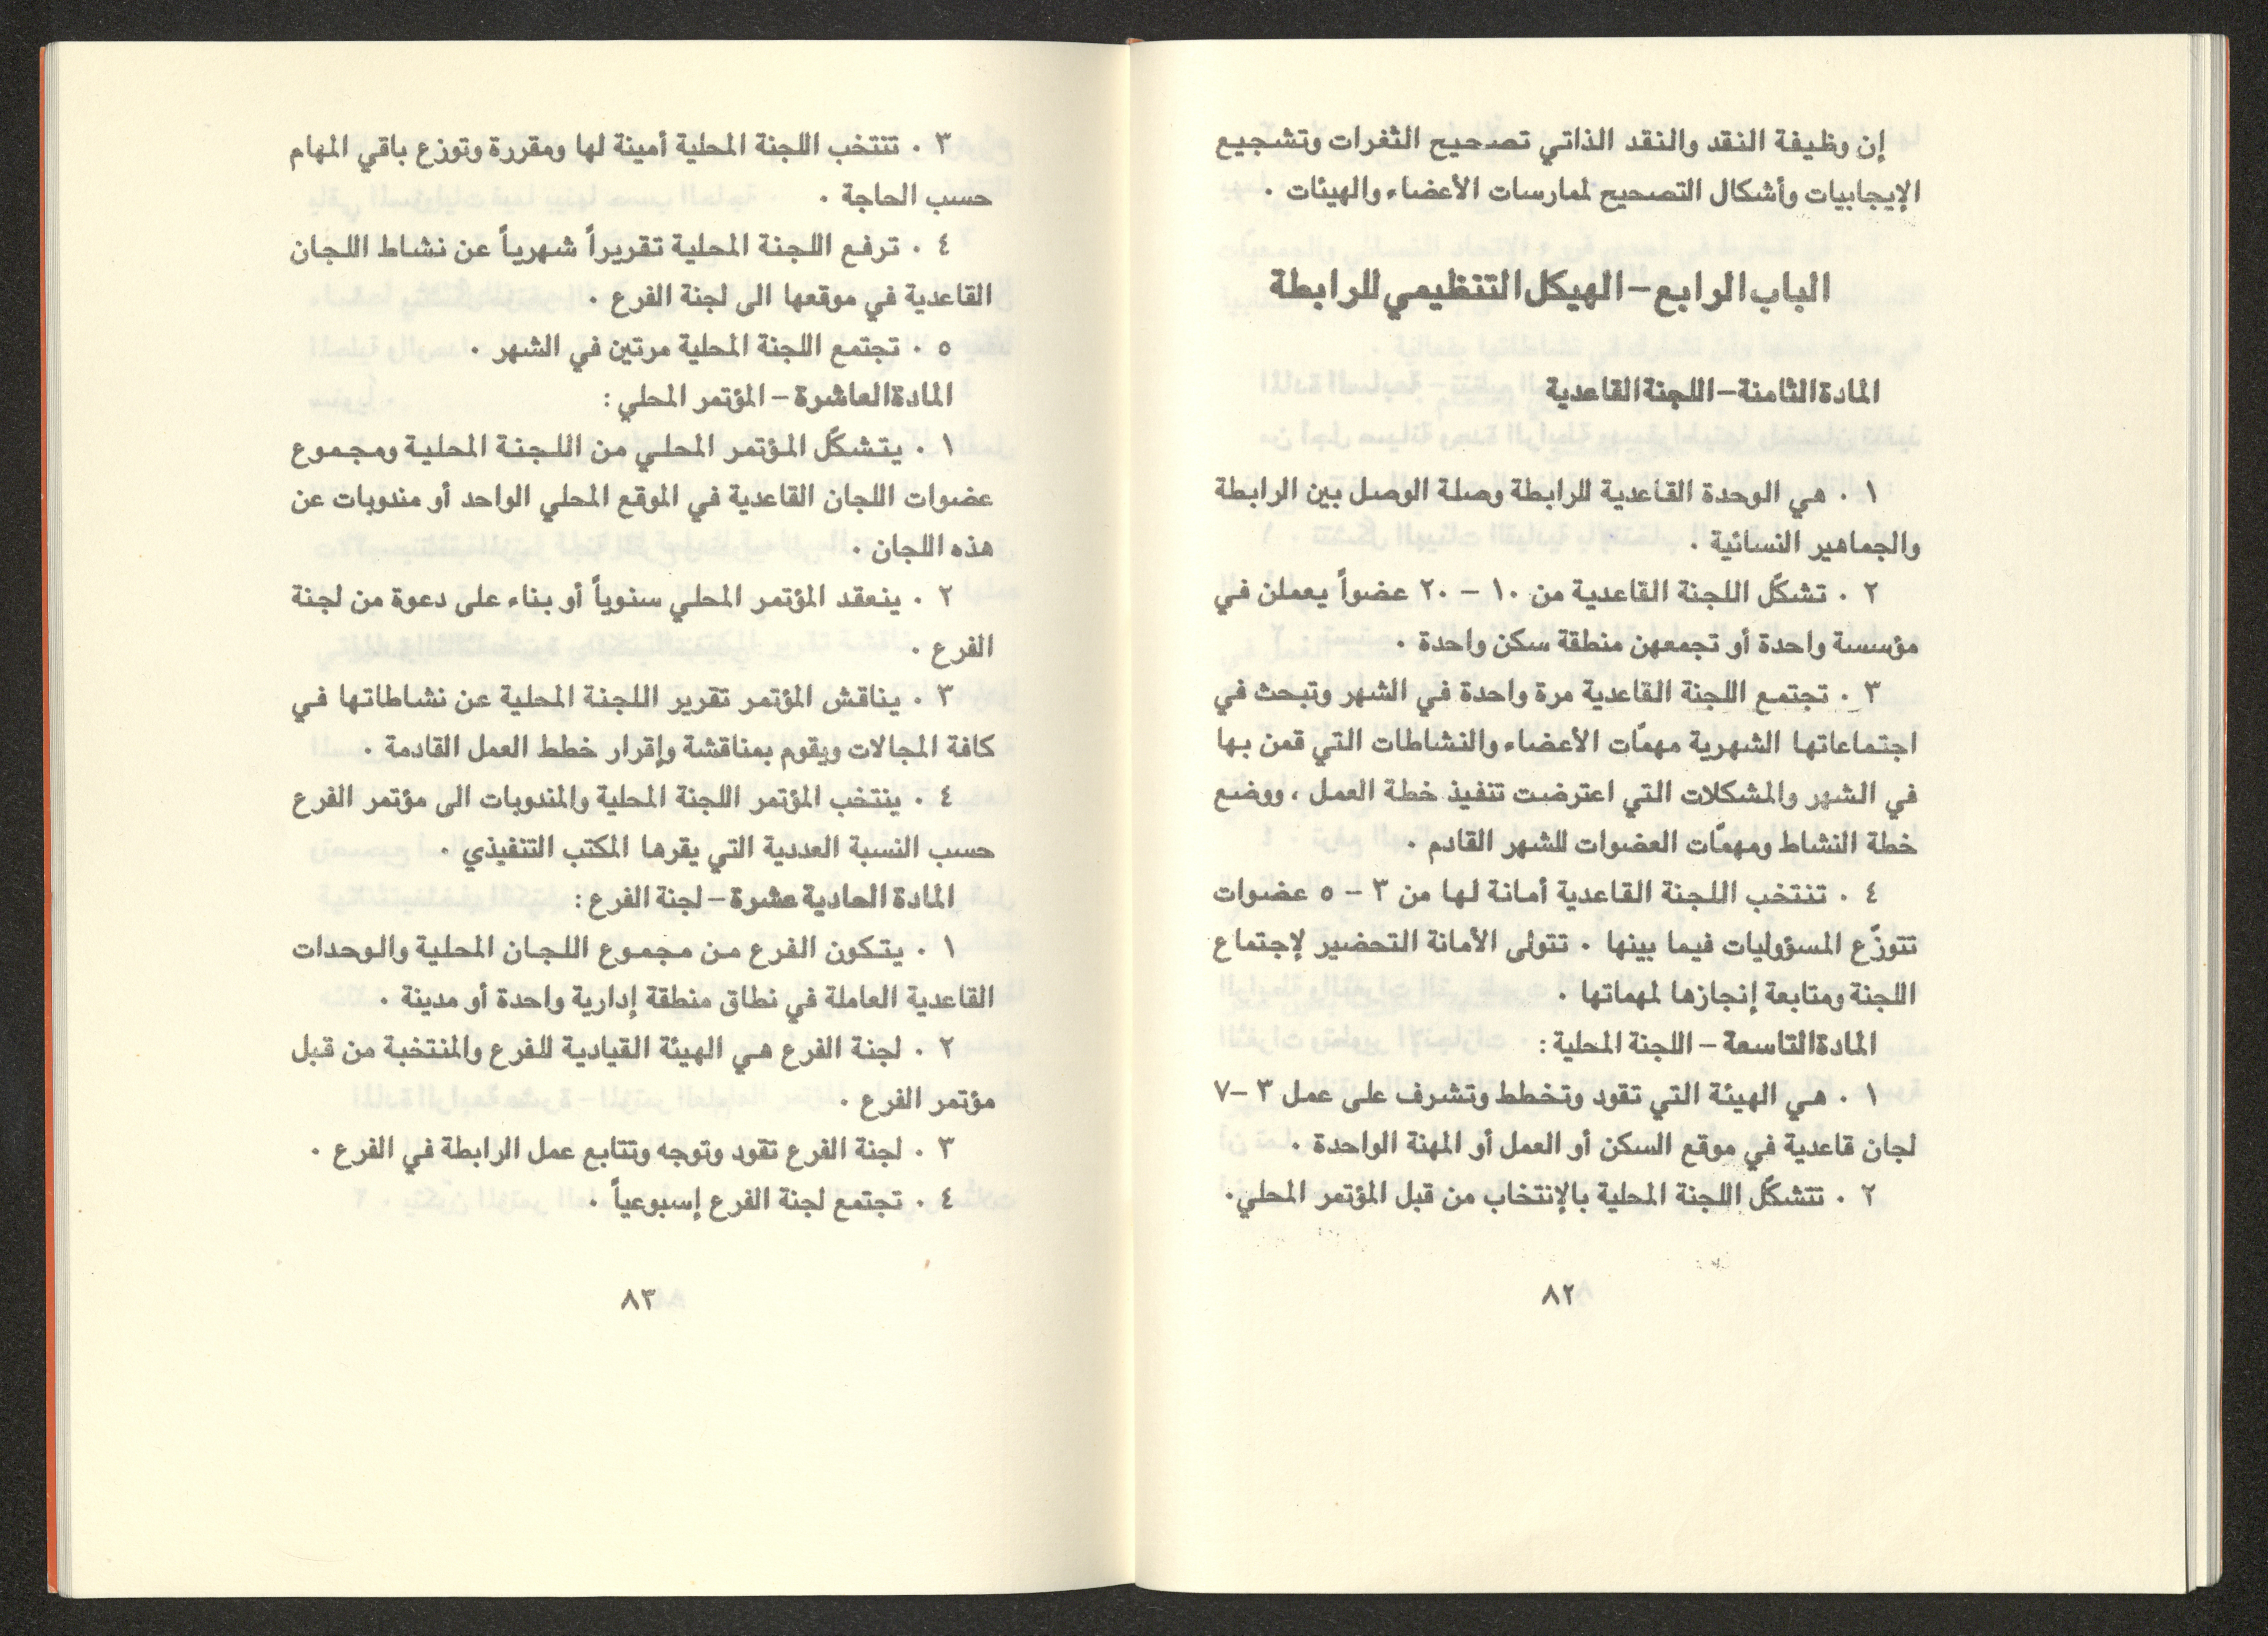 إن وظيفة النقد والنقد الذاتي تصحيح الثغرات وتشجيع
الإيجابيات وأشكال التصحيح لممارسات الأعضاء والهيئات .
الباب الرابع – الهيكل التنظيمي للرابطة
المادة الثامنة – اللجنة القاعدية
١ . هي الوحدة القاعدية للرابطة وصلة الوصل بين الرابطة
والجماهير النسائية .
٢ . تشكّل اللجنة القاعدية من ١٠ – ٢٠ عضواً يعملن في
مؤسسة واحدة أو تجمعهن منطقة سكن واحدة .
٣ . تجتمع اللجنة القاعدية مرة واحدة في الشهر وتبحث في
اجتماعاتها الشهرية مهمّات الأعضاء والنشاطات التي قمن بها
في الشهر والمشكلات التي اعترضت تنفيذ خطة العمل ، ووضع
خطة النشاط ومهمّات العضوات للشهر القادم .
٤ . تنتخب اللجنة القاعدية أمانة لها من ٣ – ٥ عضوات
تتوزّع المسؤوليات فيما بينها . تتولى الأمانة التحضير لإجتماع
اللجنة ومتابعة إنجازها لمهماتها .
المادة التاسعة – اللجنة المحلية :
١ . هي الهيئة التي تقود وتخطط وتشرف على عمل ٣ –٧
لجان قاعدية في موقع السكن أو العمل أو المهنة الواحدة .
٢ . تتشكّل اللجنة المحلية بالإنتخاب من قبل المؤتمر المحلي.
٨٢
٣ . تنتخب اللجنة المحلية أمينة لها ومقررة وتوزع باقي المهام
حسب الحاجة .
٤ . ترفع اللجنة المحلية تقريراً شهرياً عن نشاط اللجان
القاعدية في موقعها الى لجنة الفرع .
٥ . تجتمع اللجنة المحلية مرتين في الشهر .
المادة العاشرة – المؤتمر المحلي :
١ . يتشكّل المؤتمر المحلي من اللجنة المحلية ومجموع
عضوات اللجان القاعدية في الموقع المحلي الواحد أو مندوبات عن
هذه اللجان .
٢ . ينعقد المؤتمر المحلي سنوياً أو بناء على دعوة من لجنة
الفرع .
٣ . يناقش المؤتمر تقرير اللجنة المحلية عن نشاطاتها في
كافة المجالات ويقوم بمناقشة وإقرار خطط العمل القادمة .
٤ . ينتخب المؤتمر اللجنة المحلية والمندوبات الى مؤتمر الفرع
حسب النسبة العددية التي يقرها المكتب التنفيذي .
المادة الحادية عشرة – لجنة الفرع :
١ . يتكون الفرع من مجموع اللجان المحلية والوحدات
القاعدية العاملة في نطاق منطقة إدارية واحدة أو مدينة .
٢ . لجنة الفرع هي الهيئة القيادية للفرع والمنتخبة من قبل
مؤتمر الفرع .
٣ . لجنة الفرع تقود وتوجه وتتابع عمل الرابطة في الفرع .
٤ . تجتمع لجنة الفرع إسبوعياً .
٨٣